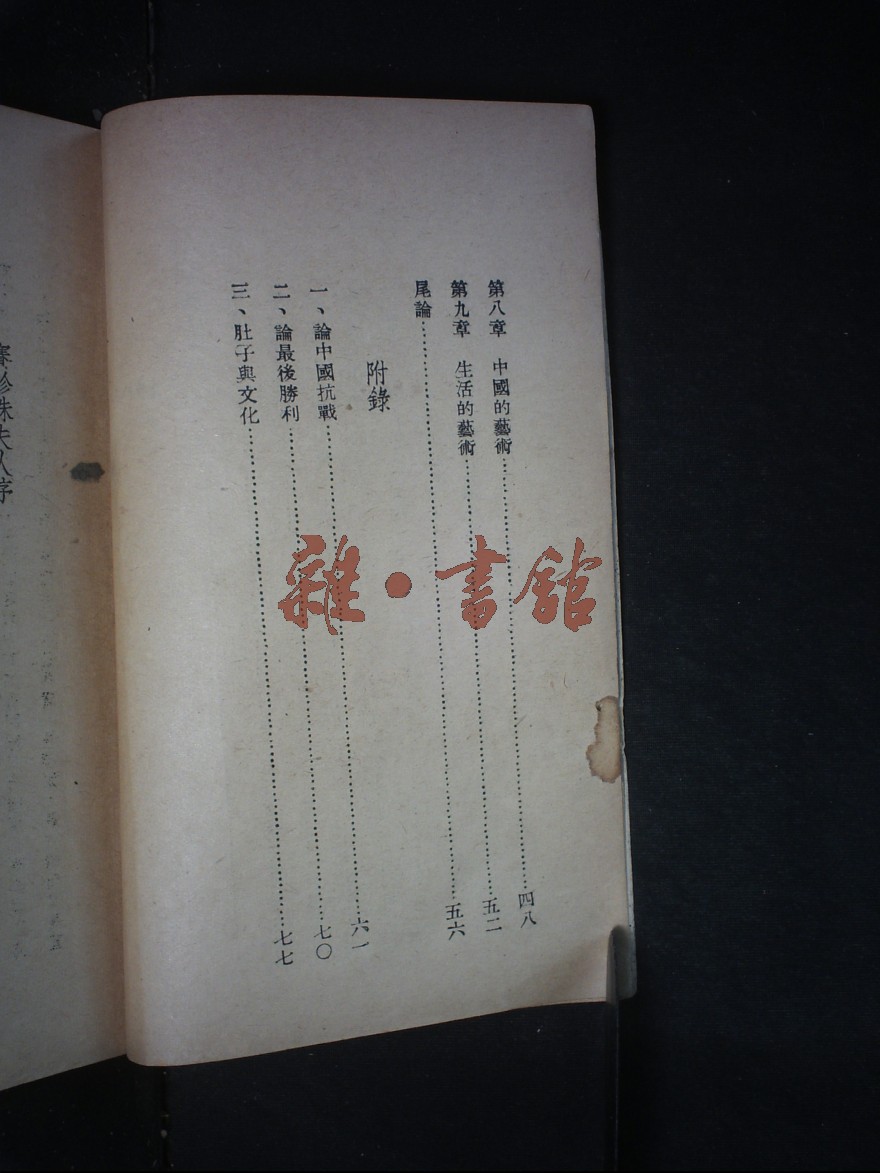 第八章 中國的藝術……四八
第九章 生活的藝術……五二
尾論……五六
附錄
一、論中國抗戰……六一
二、論最後勝利……七〇
三、肚子與文化……七七
賽珍珠夫人序
雜·書館